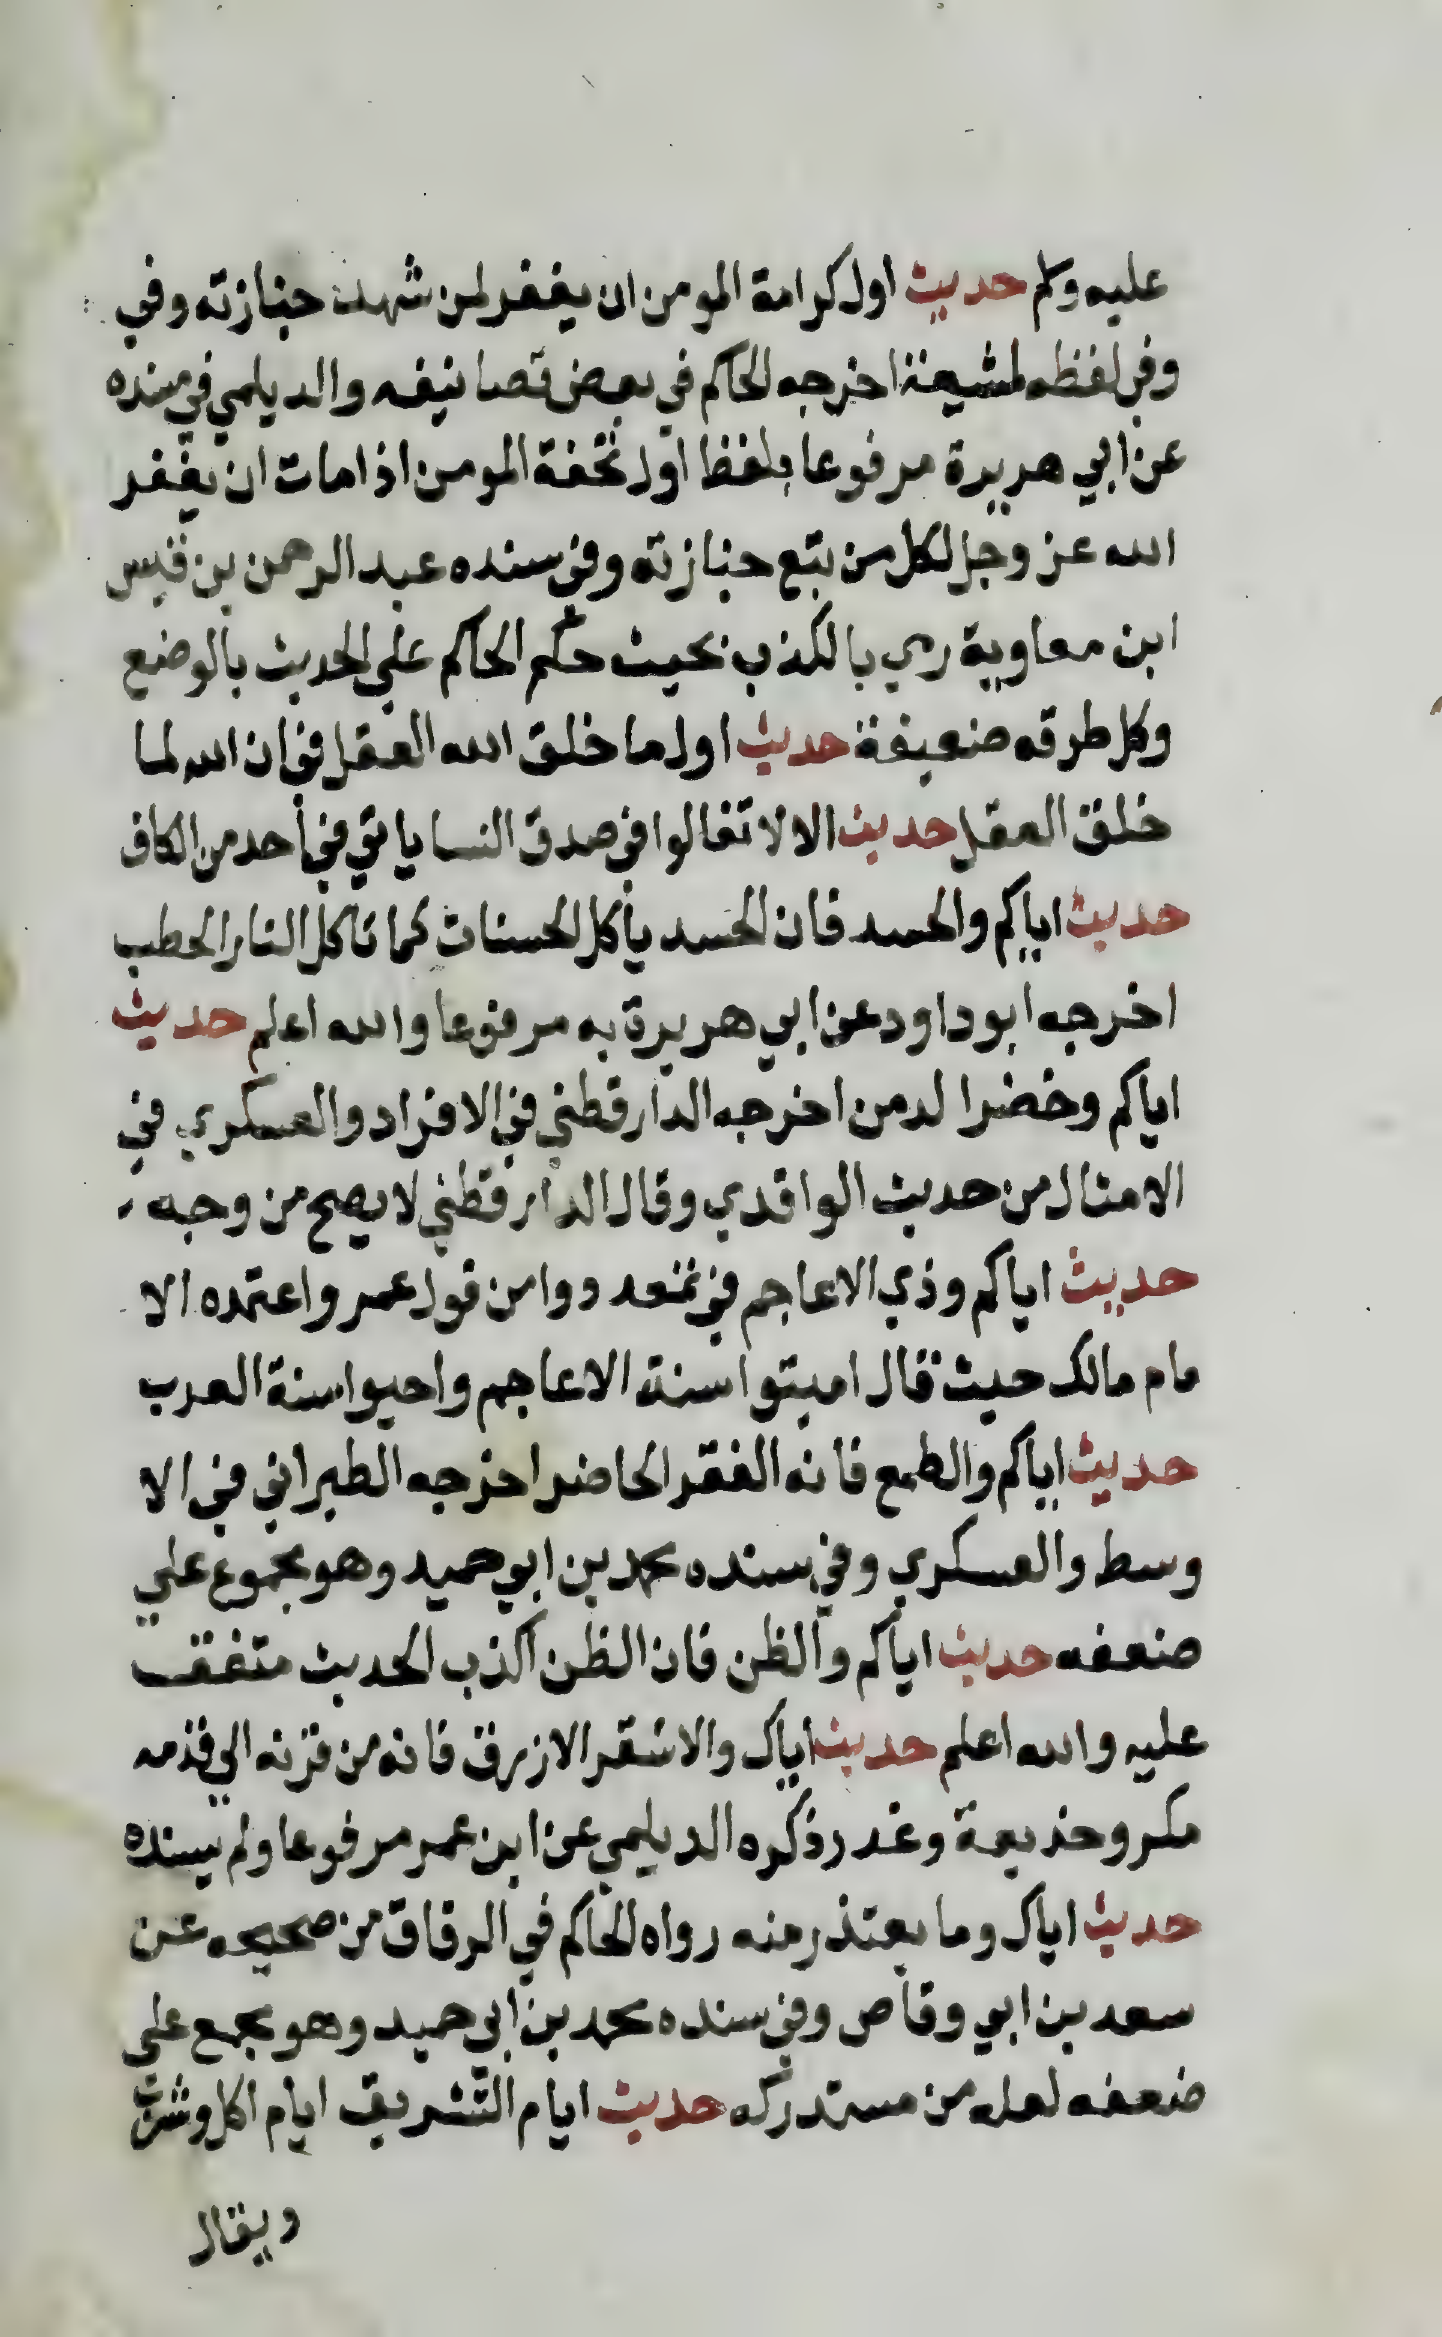 عليه وسلم حديث اول كرامة المومن ان يغفر لمن شهد جنازته وفي
وفي لفظ لمشيعة اخرجه الحاكم في بعض تصانيفه والديلمي في مسنده
عن ابي هريرة مرفوعا بلفظ اول تحفة المومن اذا مات ان يغفر
الله عز وجل لكل من تبع جنازته وفي سنده عبد الرحمن بن قيس
ابن معاوية رمي بالكذب بحيث حكم الحاكم على الحديث بالوضع
وكل طرقه ضعيفة حديث اول ما خلق الله العقل في ان الله لما
خلق العقل حديث الا لا تغالوا في صدق النسا ياتي في أحد من الكاف
حديث اياكم والحسد فان الحسد يأكل الحسنات كما تاكل النار الحطب
اخرجه ابو داود عن ابي هريرة به مرفوعا والله اعلم حديث
اياكم وخضرا لدمن اخرجه الدارقطني في الافراد والعسكري في
الامثال من حديث الواقدي وقال الدارقطني لا يصح من وجه
حديث اياكم وذي الاعاجم في تمعددوا من قول عمر واعتمده الا
مام مالك حيث قال اميتوا سنة الاعاجم واحيوا سنة العرب
حديث اياكم والطمع فانه الفقر الحاضر اخرجه الطبراني في الا
وسط والعسكري وفي سنده محمد بن ابي حميد وهو مجموع علي
ضعفه حديث اياكم والظن فان الظن اكذب الحديث متفق
عليه والله اعلم حديث اياك والاشقر الازرق فانه من قرنه الي قدمه
مكر وخديعة وغدر ذكره الديلمي عن ابن عمر مرفوعا ولم يسنده
حديث اياك وما يعتذر منه رواه الحاكم في الرقاق من صحيحه عن
سعد بن ابي وقاص وفي سنده محمد بن ابي حميد وهو مجمع علي
ضعفه لعله من مستدركه حديث ايام التشريق ايام اكل وشرب
ويقال